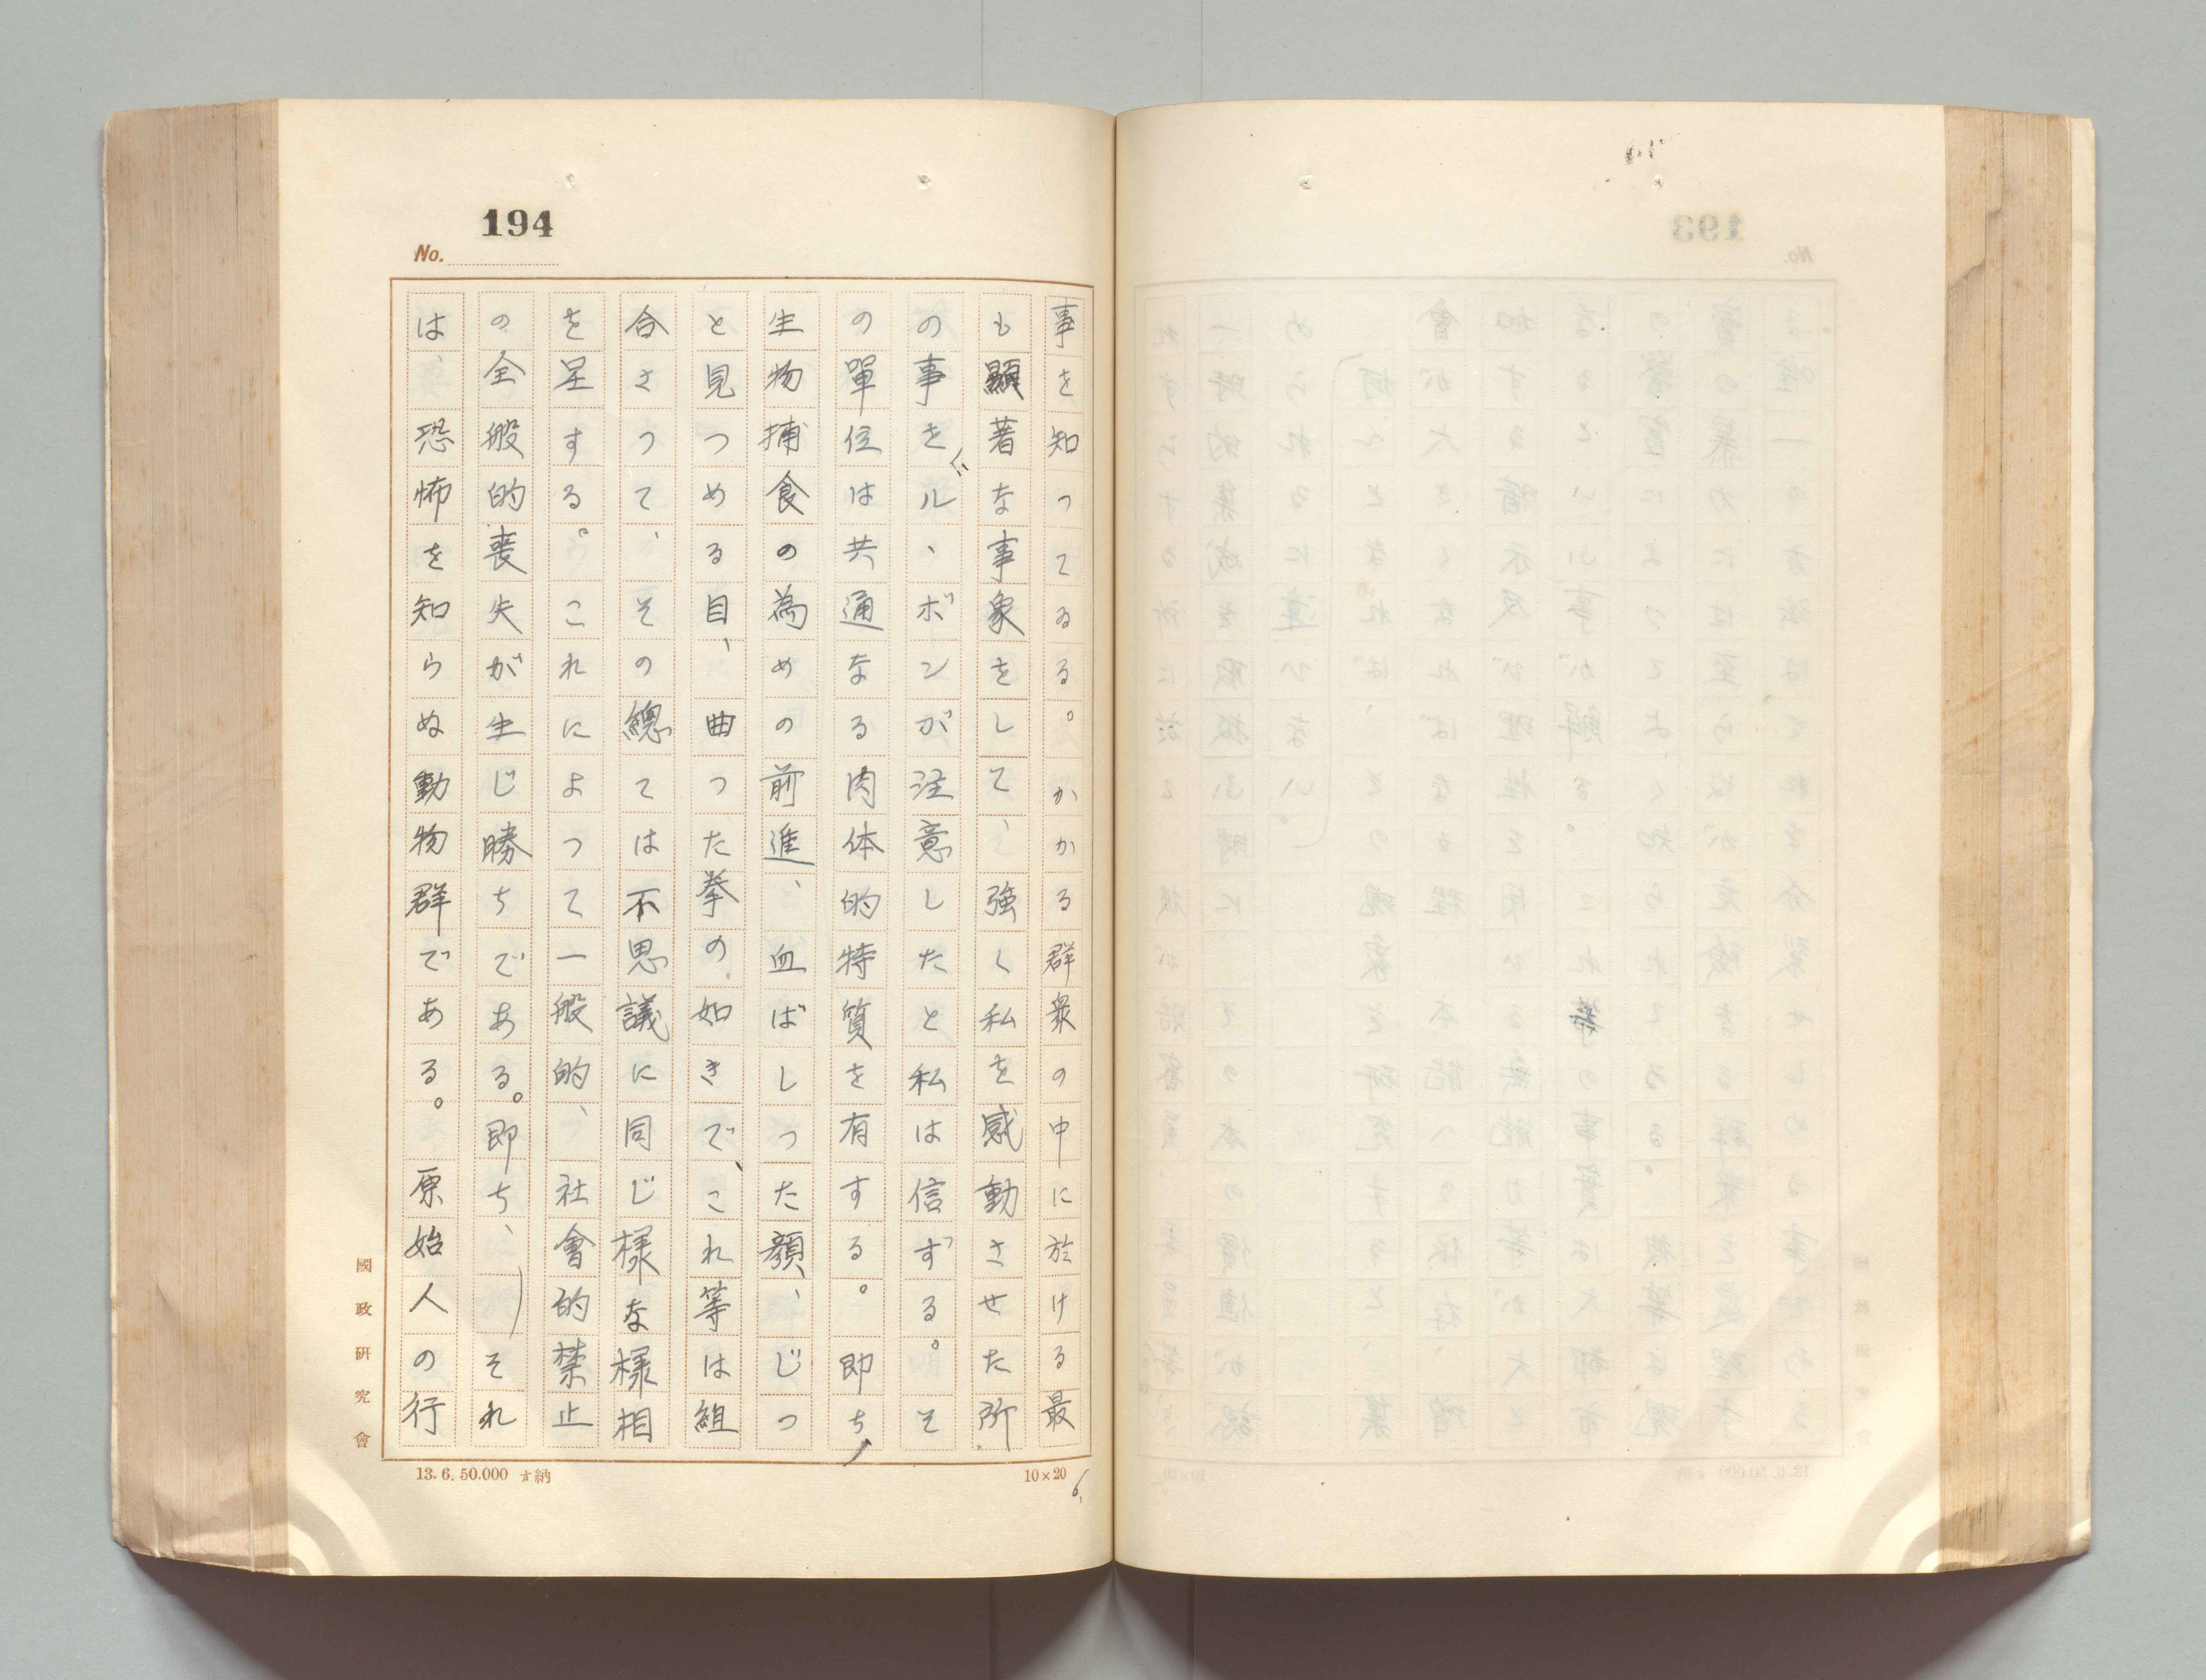 194
No.
事を知つてゐる。かかる群衆の中に於ける最
も顯著な事象をして、強く私を感動させた所
の事をグル、ボンが注意したと私は信ずる。そ
の單位は共通なる肉体的特質を有する。即ち、
生物捕食の為めの前進、血ばしつた顔、じつ
と見つめる目、曲つた拳の如きで、これ等は組
合さつて、その總ては不思議に同じ樣な樣相
を呈する。これによつて一般的、社會的禁止
の全般的喪失が生じ勝ちである。即ち、)それ
は、恐怖を知らぬ動物群である。原始人の行
國政研究會
13.6.50.000 納
10×20
6.